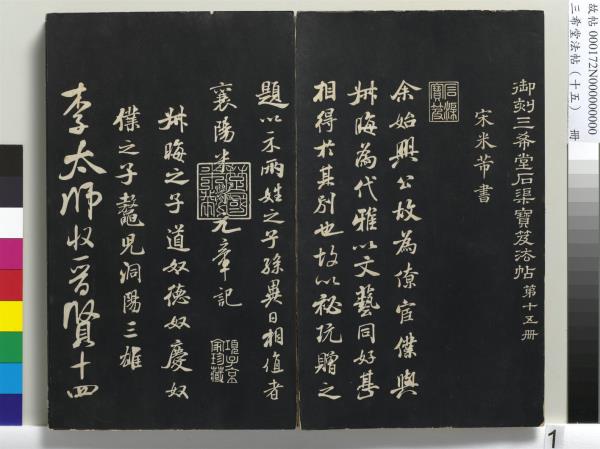 御刻三希堂石渠寶笈法帖 第十五冊
宋米芾書
石渠寶笈
余始興公故為僚宦僕與
叔晦為代雅以文藝同好甚
相得於其別也故以秘玩贈之
題以示兩姓之子孫異日相值者
襄陽米黻元章記
叔晦之子道奴德奴慶奴
僕之子鼇兒洞陽三雄
項子京家珍藏
李太師收晉賢十四
故帖 000172N000000000
三希堂法帖(十五) 冊
1